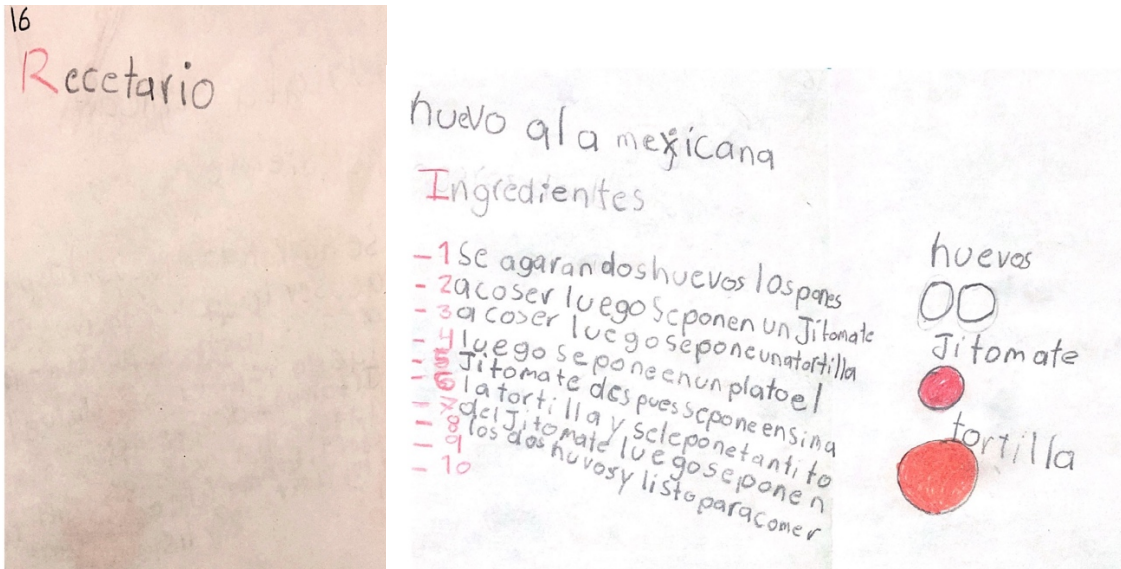 16
Recetario
huevo a la mexicana
Ingredientes
-1 Se agaran doshuevos lospones
-2 acoser luego seponen un Jitomate
-3 a coser luego seponeunatortilla
-4 luego seponeenunplatoel
-5 Jitomate despuesseponeensima
-6 latortilla y seleponetantito
-7 delJitomate luegoseponen
-8 los dos huvosy listoparacomer
-9
-10
huevos
Jitomate
tortilla